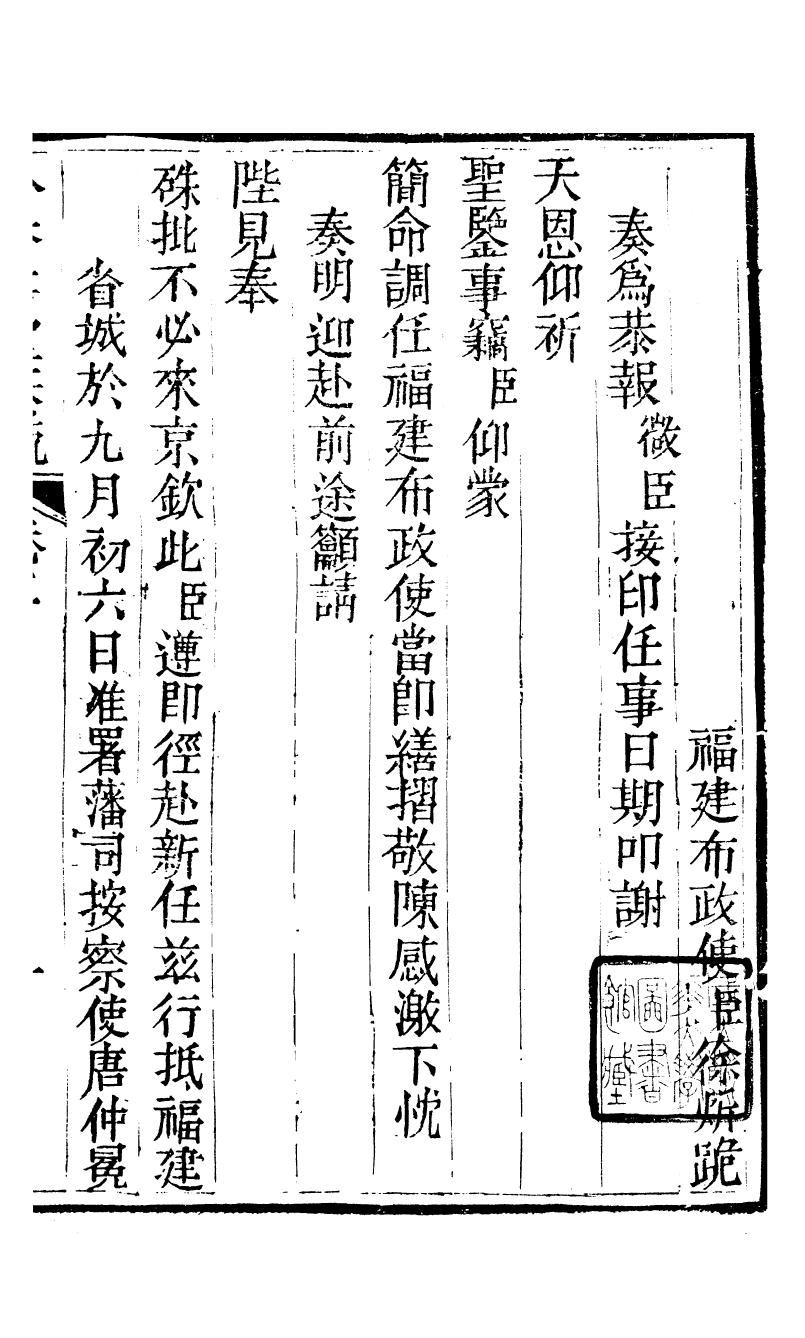 福建布政使臣徐炘跪
奏爲恭報微臣接印任事日期叩謝
天恩仰祈
聖鑒事竊臣仰蒙
簡命調任福建布政使當即繕摺敬陳感激下忱
奏明迎赴前途籲請
陛見奉
硃批不必來京欽此臣遵即徑赴新任茲行抵福建
省城於九月初六日准署藩司按察使唐仲冕
圖書
館藏